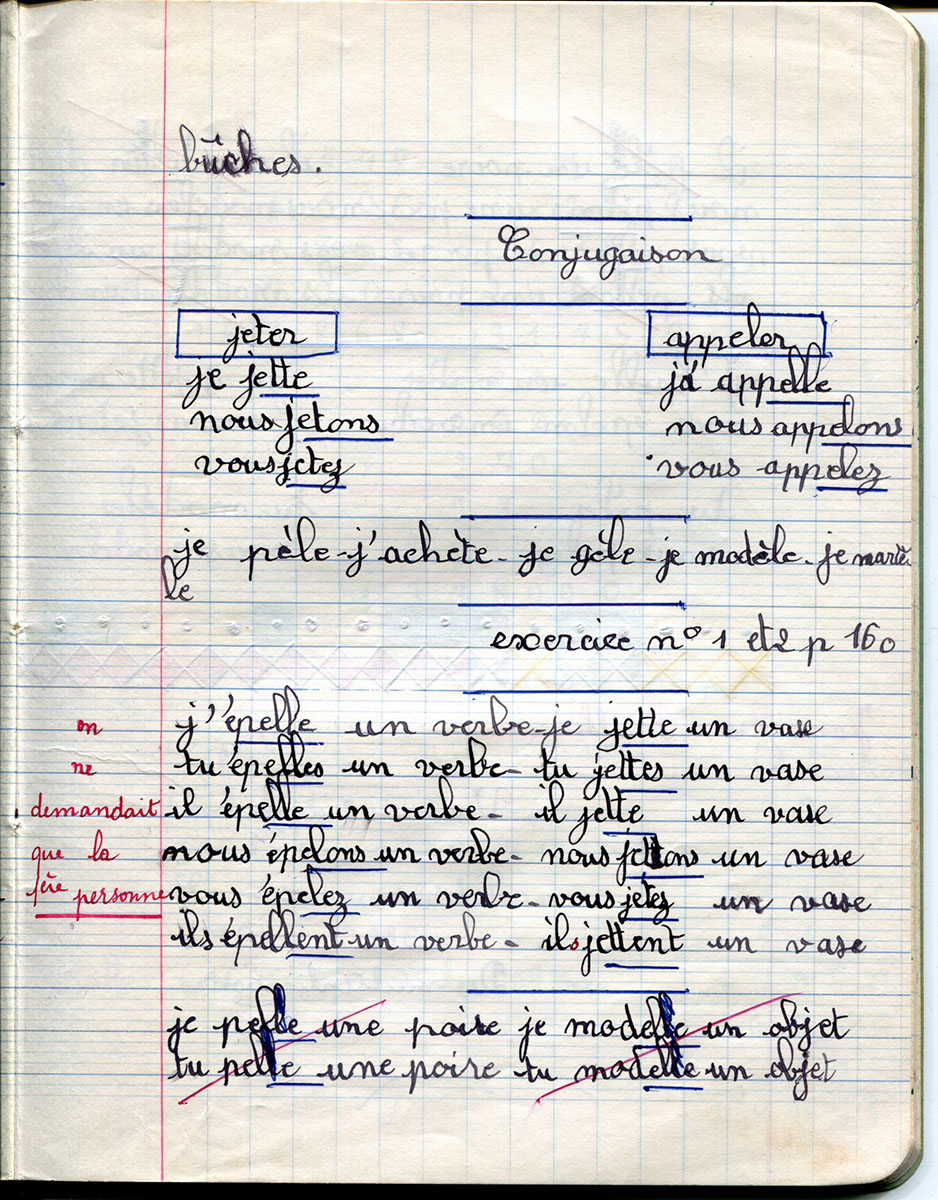 bûches.
Conjugaison
jeter appeler
je jette j'appelle
nous jetons nous appelons
vous jetez vous appelez
je pèle - j'achète - je gèle - je modèle - je martè
le
exercice n° 1 et 2 p 160
on j'épelle un verbe - je jette un vase
ne tu épelles un verbe - tu jettes un vase
demandait il épelle un verbe - il jette un vase
que la nous épelons un verbe - nous jetons un vase
1ère personne vous épelez un verbe - vous jetez un vase
ils épellent un verbe - ils jettent un vase
je pelle une poire je modelle un objet
tu pelle une poire tu modelle un objet